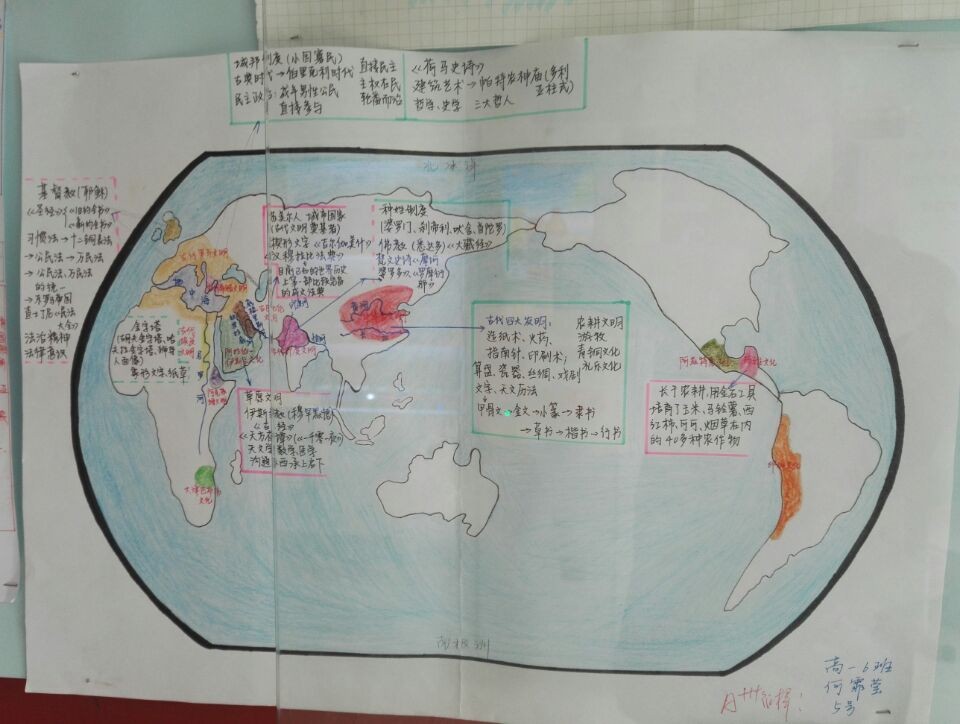 城邦制度(小国寡民)
古典时代→伯里克利时代
民主政治:成年男性公民
直接参与
直接民主
主权在民
轮番而治
《荷马史诗》
建筑艺术→帕特农神庙(多利
亚柱式)
哲学、史学 三大哲人
北冰洋
基督教(耶稣)
《圣经》:《旧约全书》
《新约全书》
习惯法→十二铜表法
→公民法→万民法
→公民法、万民法
的统一
→东罗马帝国
查士丁尼《民法
大全》
法治精神
法律意识
苏美尔人 城市国家
(古代文明奠基者)
楔形文字《吉尔伽美什》
《汉穆拉比法典》
目前已知的世界历史
上第一部比较完备
的成文法典
种姓制度
(婆罗门、刹帝利、吠舍、首陀罗)
佛教(悉达多)《大藏经》
梵文史诗《摩诃
婆罗多》、《罗摩衍
那》
地中海
金字塔
(胡夫金字塔、哈
夫拉金字塔、狮身
人面像)
象形文字、纸草
尼罗河
黄河
长江
古代四大发明:
造纸术、火药、
指南针、印刷术;
算盘、瓷器、丝绸、戏剧
文字、天文历法
农耕文明
游牧
青铜文化
礼乐文化
甲骨文→金文→小篆→隶书
→草书→楷书→行书
草原文明
伊斯兰教(穆罕默德)
《古兰经》
《天方夜谭》(《一千零一夜》)
天文学 数学 医学
沟通东西 承上启下
长于农耕,用金石工具
培育了玉米、马铃薯、西
红柿、可可、烟草在内
的40多种农作物
大津巴布韦
文化
南极洲
高一6班
5号